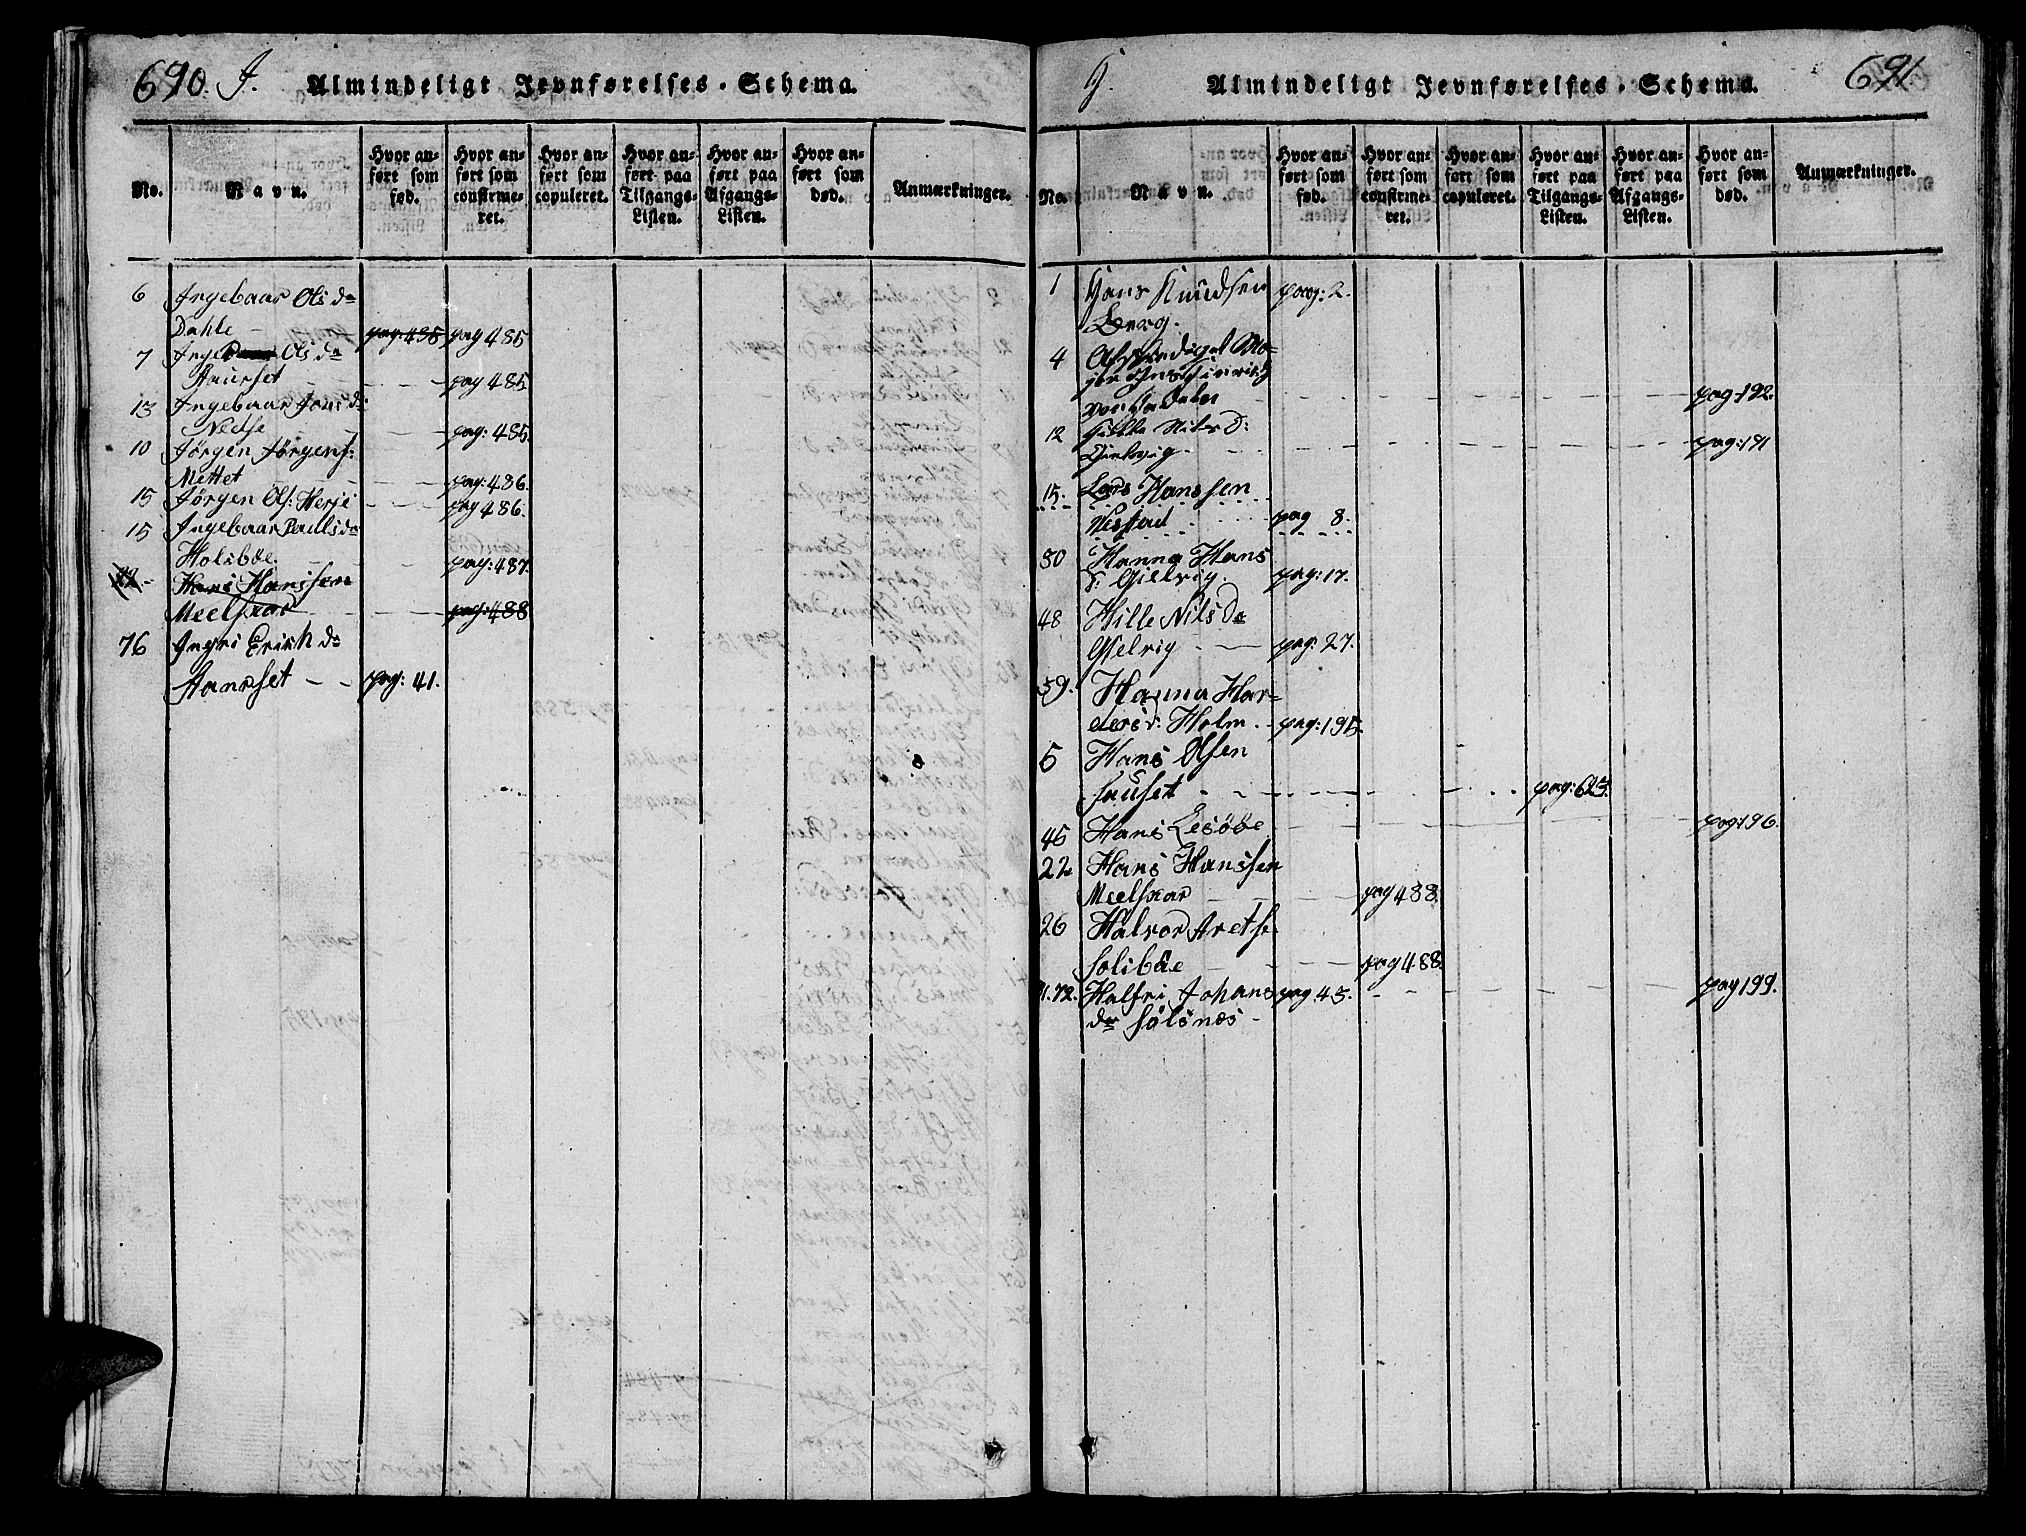 690. J. Almindeligt Jevnførelses-Schema.
No. Navn. Hvor anført som fød. Hvor anført som confirmeret. Hvor anført som copuleret. Hvor anført paa Tilgangs-Listen. Hvor anført paa Afgangs-Listen. Hvor anført som død. Anmærkninger.
6 Ingebaar Ols da
Dahle - pag. 485 pag 485
7 Inge Ols da
Aaurset - - - pag 485
13 Ingebaar Jons d:
- - - pag: 485.
10 Jörgen Jörgens:
Mettet - - - pag: 486.
15 Jörgen Ols: Herje - - - pag 486.
15 Ingebaar Pauls da
Holsböe. - - - pag: 487.
22. Hans Hanssen
Meelsxar - - - pag: 488
76 Ingri Erich da
Aanrset - - pag: 41.
H. Almindeligt Jevnførelses-Schema. 691.
No. Navn. Hvor anført som fød. Hvor anført som confirmeret. Hvor anført som copuleret. Hvor anført paa Tilgangs-Listen. Hvor anført paa Afgangs-Listen. Hvor anført som død. Anmærkninger.
1 Hans Knudsen pag: 2.
Berg.
4
pag: 192.
12 Nils D:
- - - pag: 191
15. Lars Hanssen
Nestad - pag 8.
30 Hanna Hans
d. Gielvig. pag: 17.
48 Hille Nils Da
Gielvig - pag: 27.
59. Hanna Har-
Holm. - pag: 195.
5 Hans Olsen
- - - pag: 623.
45 Hans Lesöbe - - - pag: 196.
22 Hans Hanssen
Meelsxar - - - pag 488.
26 Halvor Aretse
Solibäe - - - pag 488.
1.72. Halfri Johans pag 45. - - - pag 199.
da Sølsnæs -